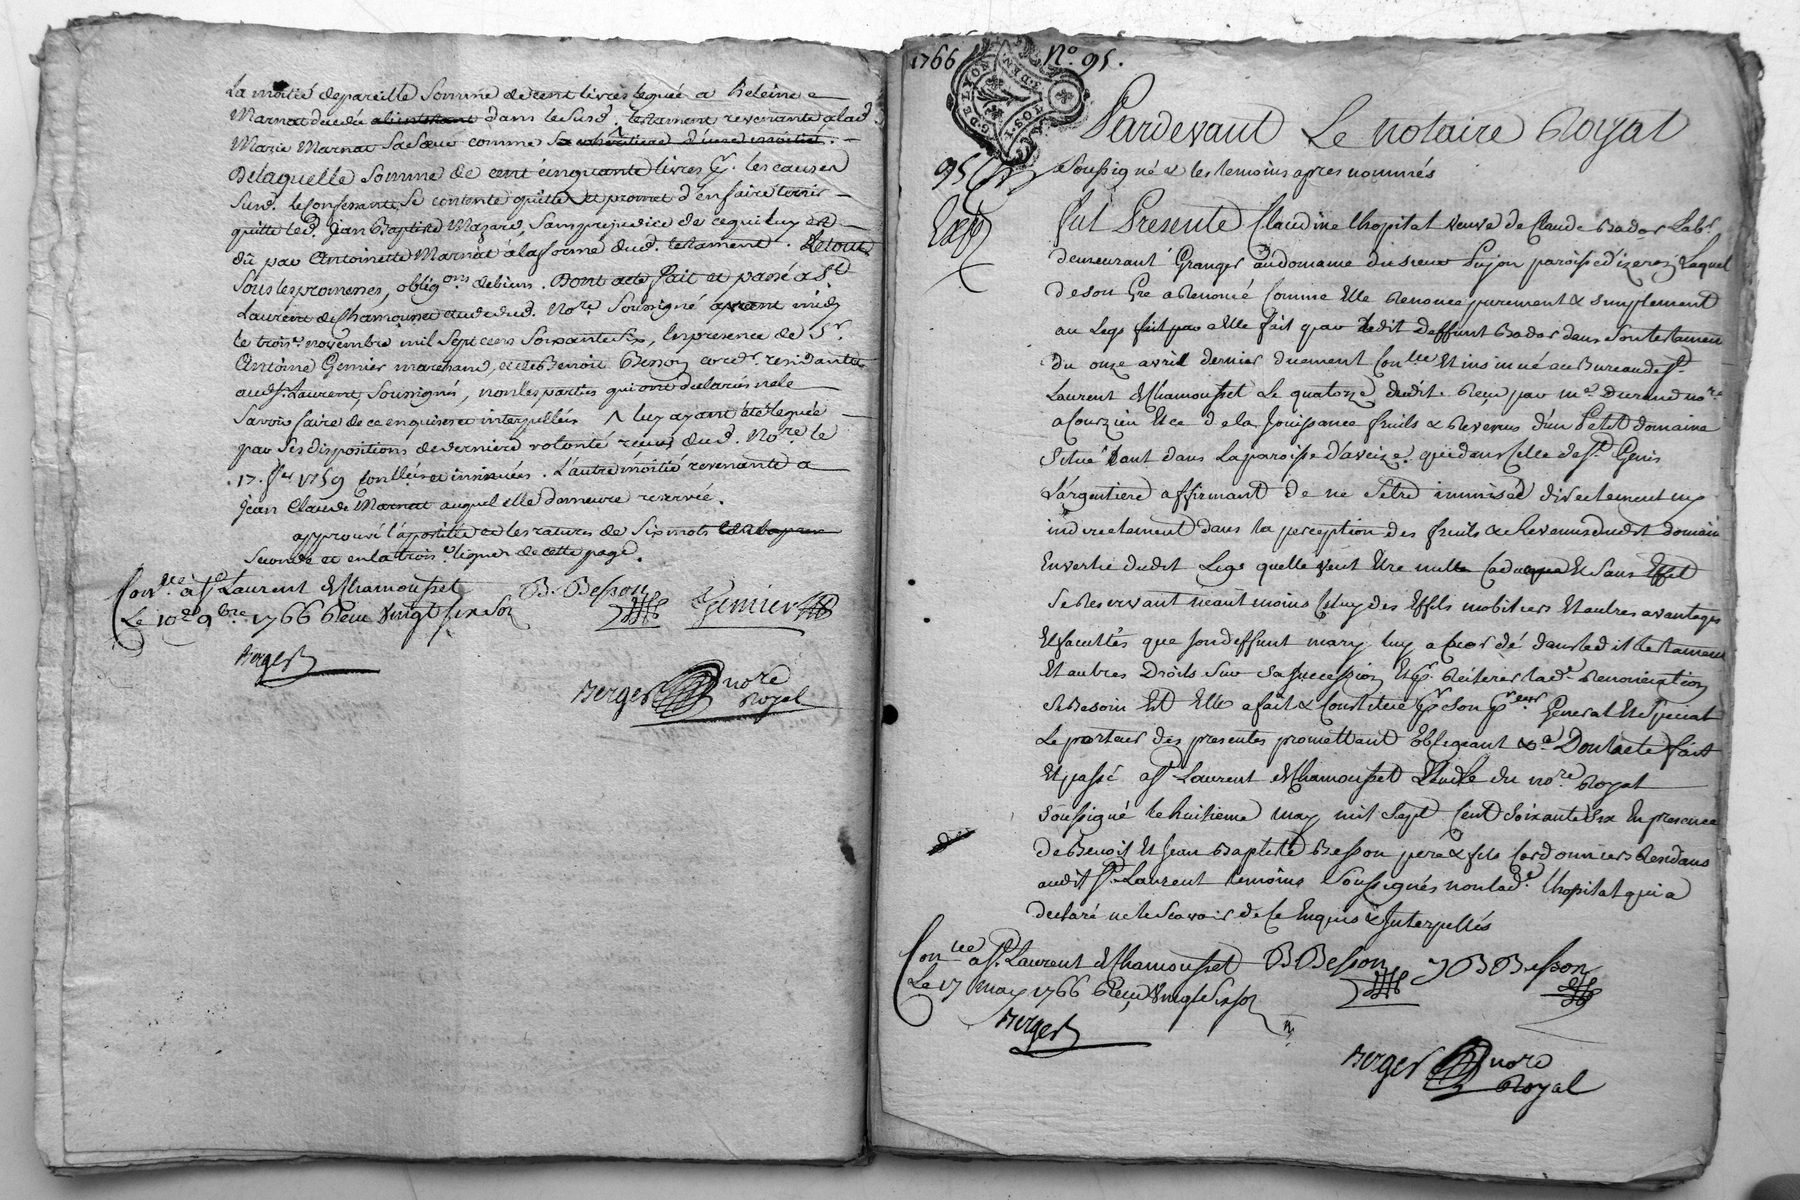 La moitié de pareille somme de cent livres leguée a Heleine
Marnat decedée dans le susd. testament revenante a lad.
Marie Marnat sa sœur comme
De laquelle somme de cent cinquante livres les causes
susd. le confessante se contente quitte et promet d'en faire tenir
quitte led. Jean Baptiste Mazard, sans prejudice de ce qui luy est
dû par Antoinette Marnat a la forme dud. testament. Le tout
sous les promesses, oblig.ons de biens. Dont acte fait et passé a St
Laurent de Chamousset etude dud. No.re soussigné avant midy
le trois.e novembre mil sept cens soixante six, en presence de Sr
Antoine Gemier marchand, et de Benoit Besson cord.r residants
aud. St. Laurent soussignés, non les parties qui ont declarés ne le
savoir faire de ce enquises et interpellées luy ayant été leguée
par ses dispositions de derniere volonté reçues dud. No.re le
17. 1759 conllées et insinuées. L'autre moitié revenante a
Jean Claude Marnat auquel elle demeure reservée.
approuvé l'apostille et les ratures de six mots
seconde et en la trois.e lignes de cette page.
Con.lle a St Laurent de Chamousset B. Besson Gemier
Le 10.e 9bre 1766 Reçu vingt six sol
Berger
Berger no.re
Royal
1766 N.o 95.
G. DE LYON
Pardevant Le Notaire Royal
95
soussigné & les temoins apres nommés
Exp
fut Presente Claudine Lhopital veuve de Claude Bador Lab.r
demeurant Granger au domaine du sieur Pujon paroisse d'izeron, Laquel
de son Gre a Renoncé Comme Elle Renonce purement & simplement
au Legs fait par ledit deffunt Bador dans son testament
du onze avril dernier duement Con.lle Et insinué au Bureau de St
Laurent de Chamousset Le quatorze dudit Reçu par M.e Durand no.re
a Courzieu Et ce de la Jouissance fruits & Revenus d'un Petit domaine
Situé tant dans La paroisse d'aveize que dans Celle de St. Genis
L'argentiere affirmant de ne s'etre immiscé directement ny
indirectement dans la perception des fruits & Revenus dudit domaine
En vertu dudit Legs quelle veut Etre nulle Caduque Et Sans Effet
Se Reservant neantmoins Celuy des Effets mobiliers Et autres avantages
Et facultés que son deffunt mary luy a accordé dans ledit testament
Et autres Droits sur sa succession Et p.r Reiterer lad.e Renonciation
Si Besoin Est Elle a fait & Constitué p.r son p.r eur General Et Special
Le porteur des presentes promettant Obligeant &.a Dont acte fait
Et passé a St Laurent de Chamousset Etude du no.re Royal
soussigné le huitieme may mil sept Cent Soixante Six En presence
de Benoit Et Jean Baptiste Besson pere & fils Cordonniers Residans
audit St. Laurent temoins Soussignés non lad.e Lhopital qui a
declaré ne le Scavoir de Ce Enquis & Interpellés
Con.lle a St. Laurent de Chamousset B Besson J B Besson
Le 17 may 1766 Reçu vingt six sol
Berger
Berger no.re
Royal